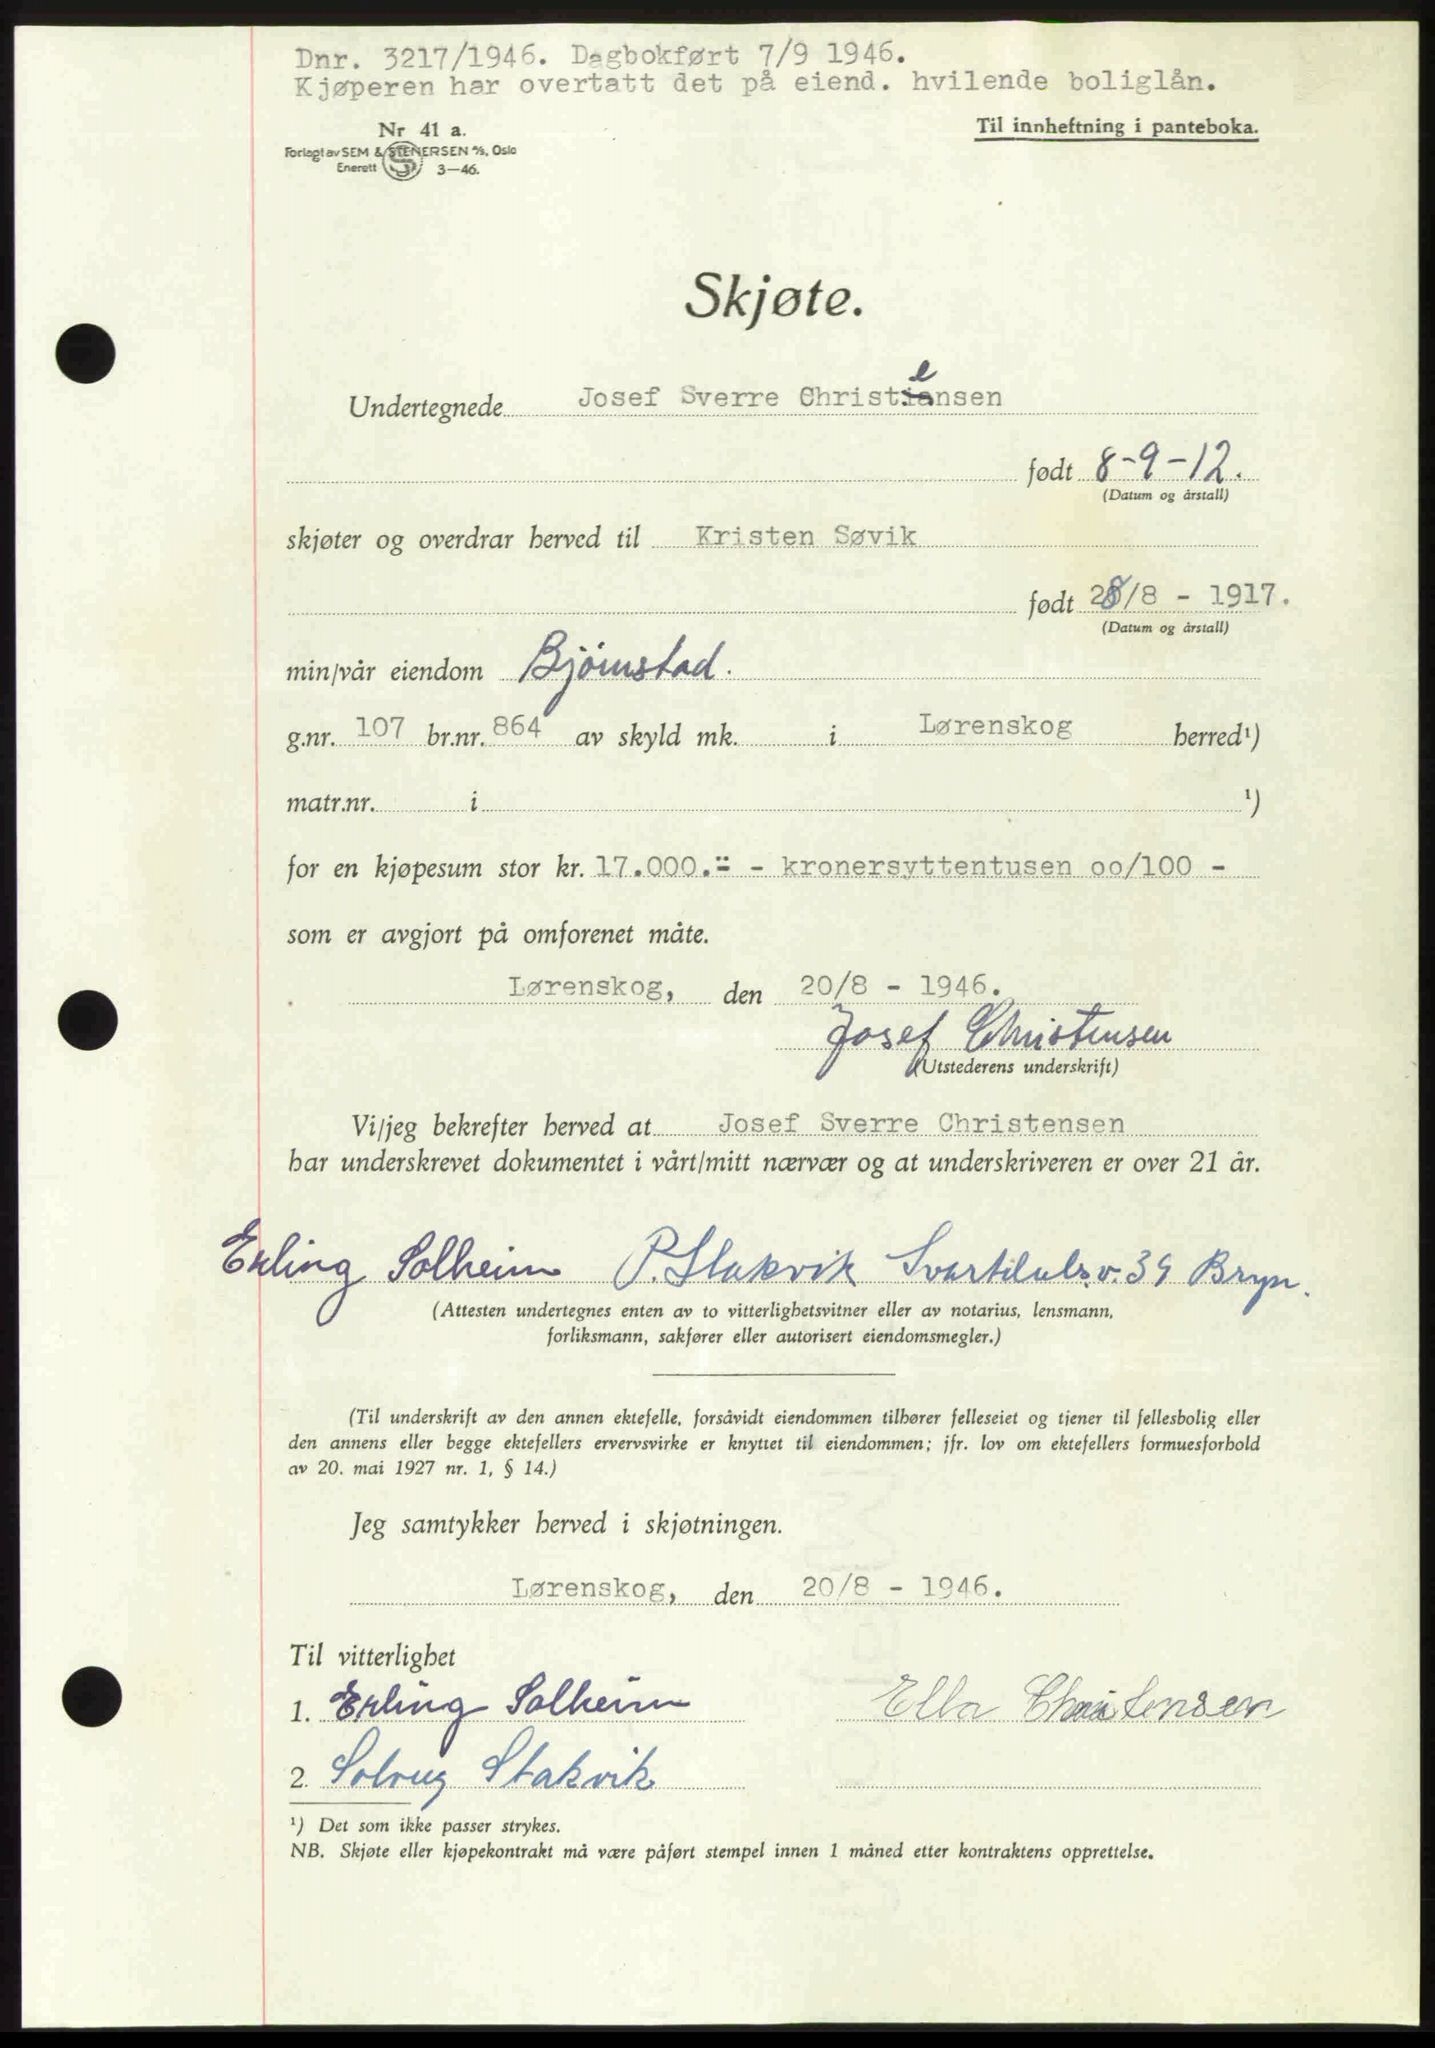 Dnr. 3217/1946. Dagbokført 7/9 1946.
Kjøperen har overtatt det på eiend. hvilende boliglån.
Nr 41 a.
Til innheftning i panteboka.
Forlagt av SEM & STENERSEN A/S, Oslo
Enerett 3—46.
Skjøte.
Undertegnede Josef Sverre Christensen
født 8-9-12.
(Datum og årstall)
skjøter og overdrar herved til Kristen Søvik
født 28/8 - 1917.
(Datum og årstall)
min/vår eiendom Bjørnstad.
g.nr. 107 br.nr. 864 av skyld mk. i Lørenskog herred¹)
matr.nr. i ¹)
for en kjøpesum stor kr. 17.000.- - kronersyttentusen oo/100 -
som er avgjort på omforenet måte.
Lørenskog, den 20/8 - 1946.
Josef Christensen
(Utstederens underskrift)
Vi/jeg bekrefter herved at Josef Sverre Christensen
har underskrevet dokumentet i vårt/mitt nærvær og at underskriveren er over 21 år.
Erling Solheim P. Stakvik v. 39 Bryn.
(Attesten undertegnes enten av to vitterlighetsvitner eller av notarius, lensmann,
forliksmann, sakfører eller autorisert eiendomsmegler.)
(Til underskrift av den annen ektefelle, forsåvidt eiendommen tilhører felleseiet og tjener til fellesbolig eller
den annens eller begge ektefellers ervervsvirke er knyttet til eiendommen; jfr. lov om ektefellers formuesforhold
av 20. mai 1927 nr. 1, § 14.)
Jeg samtykker herved i skjøtningen.
Lørenskog, den 20/8 - 1946.
Til vitterlighet
1. Erling Solheim Ella Christensen
2. Solveig Stakvik
¹) Det som ikke passer strykes.
NB. Skjøte eller kjøpekontrakt må være påført stempel innen 1 måned etter kontraktens opprettelse.